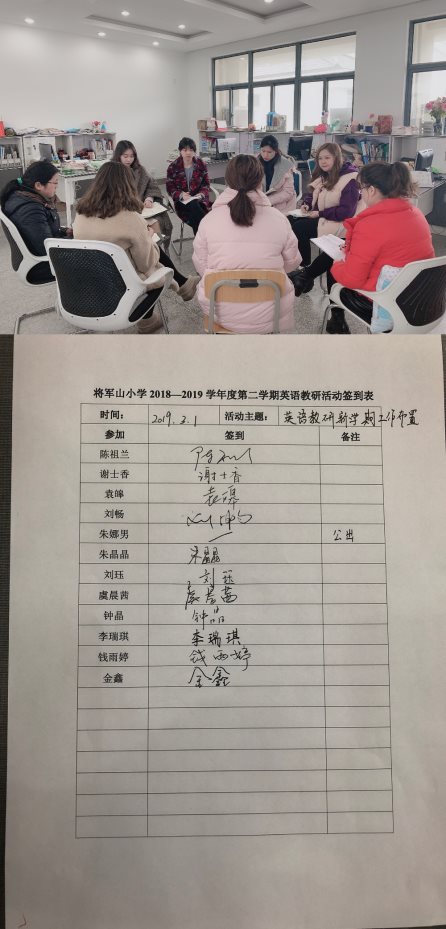 将军山小学 2018—2019 学年度第二学期英语教研活动签到表
时间： 2019.3.1 活动主题： 英语教研新学期工作布置
参加 签到 备注
陈祖兰
谢士香 谢士香
袁皞 袁皞
刘畅 刘畅
朱娜男 公出
朱晶晶 朱晶晶
刘珏 刘珏
虞晨茜 虞晨茜
钟晶 钟晶
李瑞琪 李瑞琪
钱雨婷 钱雨婷
金鑫 金鑫